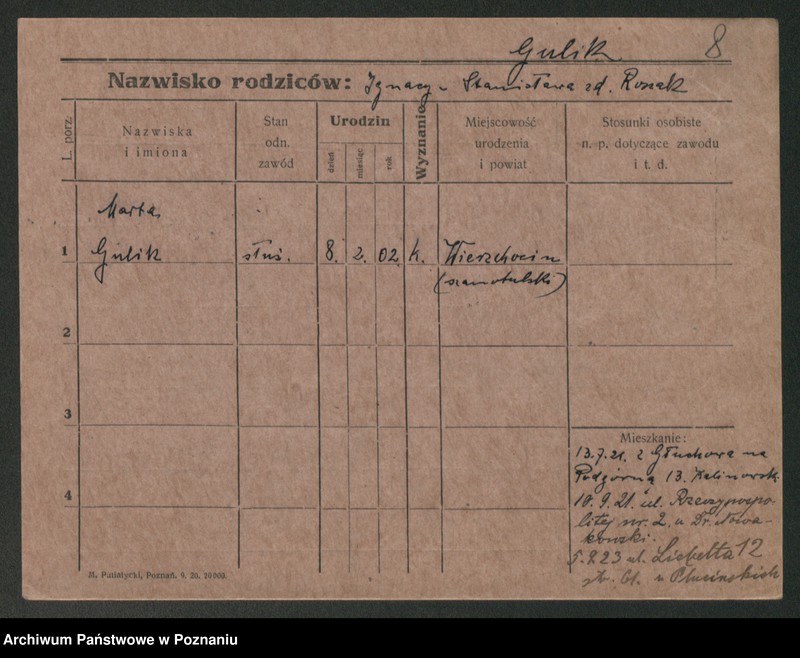 Gulik 8
Nazwisko rodziców: Ignacy Stanisława zd. Rosak
L. porz.
Nazwiska
i imiona
Stan
odn.
zawód
Urodzin
dzień
miesiąc
rok
Wyznanie
Miejscowość
urodzenia
i powiat
Stosunki osobiste
n. p. dotyczące zawodu
i t. d.
Marta
1 Gulik służ. 8. 2. 02 k. Wierzchocin
(szamotulski)
2
3
Mieszkanie:
13.7.21. z Głuchowa na
Podgórną 13. Kalinowsk.
4
10.9.21. ul. Rzeczypospo-
litej nr. 2. u Dr. Nowa-
kowski.
5.9.23 ul. Liebelta 12
u Plucińskich
M. Putiatycki, Poznań. 9. 20. 20000.
Archiwum Państwowe w Poznaniu